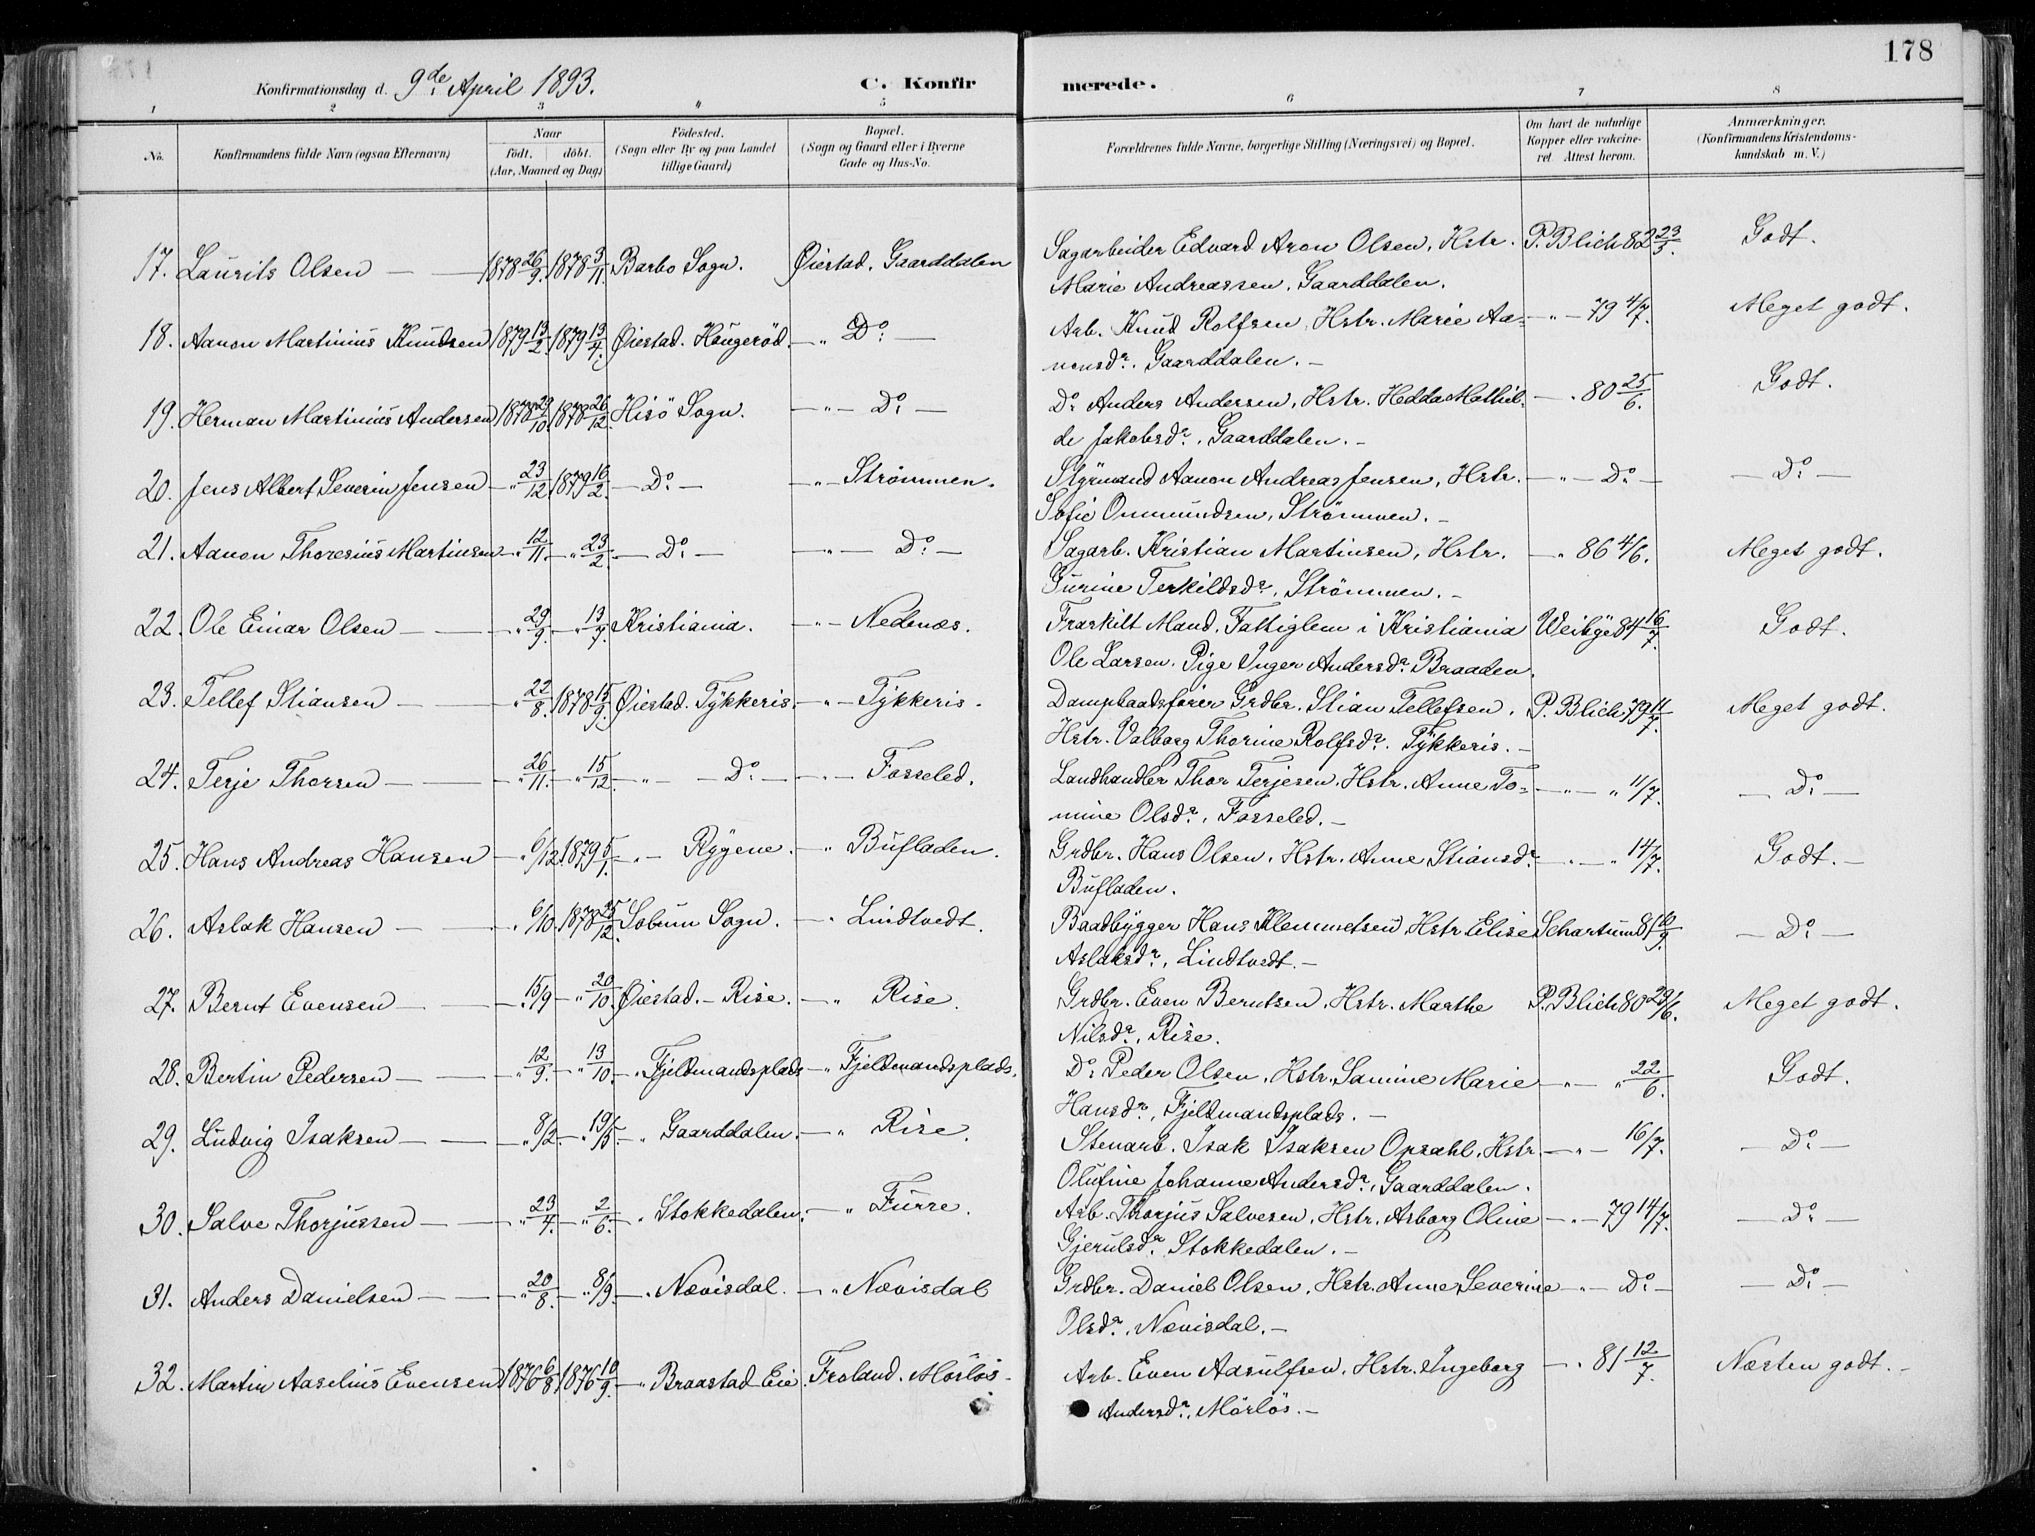 178
Konfirmationsdag d. 9de April 1893.
C. Konfirmerede.
1 2 3 " 5 6 7 8
No.
Konfirmandens fulde Navn (ogsaa Efternavn)
Naar
født. døbt.
(Aar, Maaned og Dag)
Fødested.
(Sogn eller By og paa Landet
tillige Gaard)
Bopæl.
(Sogn og Gaard eller i Byerne
Gade og Hus-No.
Forældrenes fulde Navne, borgerlige Stilling (Næringsvei) og Bopæl.
Om havt de naturlige
Kopper eller vakcine-
ret. Attest herom.
Anmærkninger.
(Konfirmandens Kristendoms-
kundskab m. V.)
17. Laurits Olsen — 1878 26/9. 1878 3/11. Barbo Sogn. Øiestad. Gaarddalen Sagarbeider Edvard Aron Olsen, Hstr. P. Blich 82 23/3. Godt.
Marie Andreassen, Gaarddalen.
18. Aanon Martinius Knudsen 1879 13/2. 1879 13/4. Øiestad. Haugerød. — " Do: — Arb. Knud Rolfsen, Hstr. Marie Aa= — " — 79 4/7. Meget godt.
nonsdr. Gaarddalen. —
19. Herman Martinius Andersen 1878 29/10. 1878 26/12. Hisö Sogn. — " — Do: — Do: Anders Andersen, Hstr. Hedda Mathil- — " 80 25/6. Godt.
de Jakobsdr. Gaarddalen. —
20. Jens Albert Severin Jensen — " 23/12. 1879 16/2. — Do: — — " — Strømmen. Styrmand Aanon Andreas Jensen, Hstr. — " — Do: — — Do: —
Sofie Ommundsen, Strömmen. —
21. Aanon Thoresius Martinsen — " 12/11. — " 23/2. — Do: — — " — Do: — Sagarb. Kristian Martinsen, Hstr. — " 86 4/6. Meget godt.
Gurine Terkildsdr., Strömmen. —
22. Ole Einar Olsen — — " 29/9. — " 13/7. Kristiania. — " — Nedenæs. Fraskilt Mand, Fattiglem i Kristiania Weibye 84 16/7. Godt.
Ole Larsen. Pige Inger Andersdr. Braaden.
23. Tellef Stiansen — — " 22/8. 1878 15/9. Øiestad. Tykkeris. — " — Tykkeris. Dampbaadsfører Grdbr. Stian Tellefsen. P. Blich 79 11/7. Meget godt.
Hstr. Valborg Thorine Rolfsdr. Tykkeris. —
24. Terje Thorsen — — " 26/11. — " 15/12. — " — Do: — — " — Fosseled. Landhandler Thor Terjesen. Hstr. Anne To= — " — " 11/7. — Do: —
mine Olsdr., Fosseled. —
25. Hans Andreas Hansen — " 6/12. 1879 5/1. — " — Rygene. — " Bufladen. Grdbr. Hans Olsen. Hstr. Anne Stiansdr. — " — " 14/7. Godt. —
Bufladen.
26. Aslak Hansen — — " 6/10. 1878 25/12. Søbum Sogn. — " Lindtvedt. Baadbygger Hans Klemmetsen, Hstr Elise Schartum 81 10/9. — Do: —
Aslaksdr., Lindtvedt. —
27. Bernt Evensen — — " 15/9 — " 20/10. Øiestad. — Rise. — " Rise. Grdbr. Even Berntsen, Hstr. Marthe P. Blich 80 23/6. Meget godt.
Nilsdr., Rise.
28. Bertin Pedersen — — " 12/9. — " 13/10. — " Fjeldmandsplads — " Fjeldmandsplads. Do: Peder Olsen, Hstr. Samine Marie — " — " 22/6. Godt.
Hansdr., Fjeldmandsplads. —
29. Ludvig Isaksen — — " 8/2. — " 19/5 — " Gaarddalen. — " Rise. Stenarb. Isak Isaksen Opsahl, Hstr. — " — 16/7. — Do: —
Olufine Johanne Andersdr., Gaarddalen.
30. Salve Thorjussen — — " 23/4. — " 2/6. — " Stokkedalen. — " Furre. Arb. Thorjus Salvesen, Hstr. Asborg Oline — " — 79 14/7. — Do: —
Gjerulsdr. Stokkedalen. —
31. Anders Danielsen — — " 20/8. — " 8/9. — " Nævisdal. — " Nævisdal Grdbr. Daniel Olsen, Hstr. Anne Severine — " — Do: — — Do: —
Olsdr., Nævisdal. —
32. Martin Aaselius Evensen 1876 6/8. 1876 10/9. — " Braastad Eie. Froland. Mörløs. Arb. Even Aasulfsen, Hstr. Ingeborg — " 81 12/7. Næsten godt. —
Andersdr., Mörlös. —